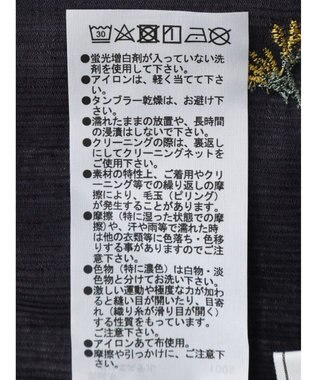 30
●蛍光増白剤が入っていない洗
剤を使用して下さい。
●アイロンは、軽く当てて下さ
い。
●タンブラー乾燥は、お避け下
さい。
●濡れたままの放置や、長時間
の浸漬はしないで下さい。
●クリーニングの際は、裏返し
にしてクリーニングネットを
ご使用下さい。
●素材の特性上、ご着用やクリ
ーニング等での繰り返しの摩
擦により、毛玉（ピリング）
が発生することがあります。
●摩擦（特に湿った状態での摩
擦）や、汗や雨等で濡れた時
は他の衣類等に色落ち・色移
りする事がありますのでご注
意下さい。
●色物（特に濃色）は白物・淡
色物と分けてお洗い下さい。
●激しい運動や極度な力が加わ
ると縫い目が開いたり、目寄
れ（織り糸が滑り目が開く）
する性質をもっています。
ご注意下さい。
●アイロンあて布使用。
●摩擦や引っかけに、ご注意下
さい。